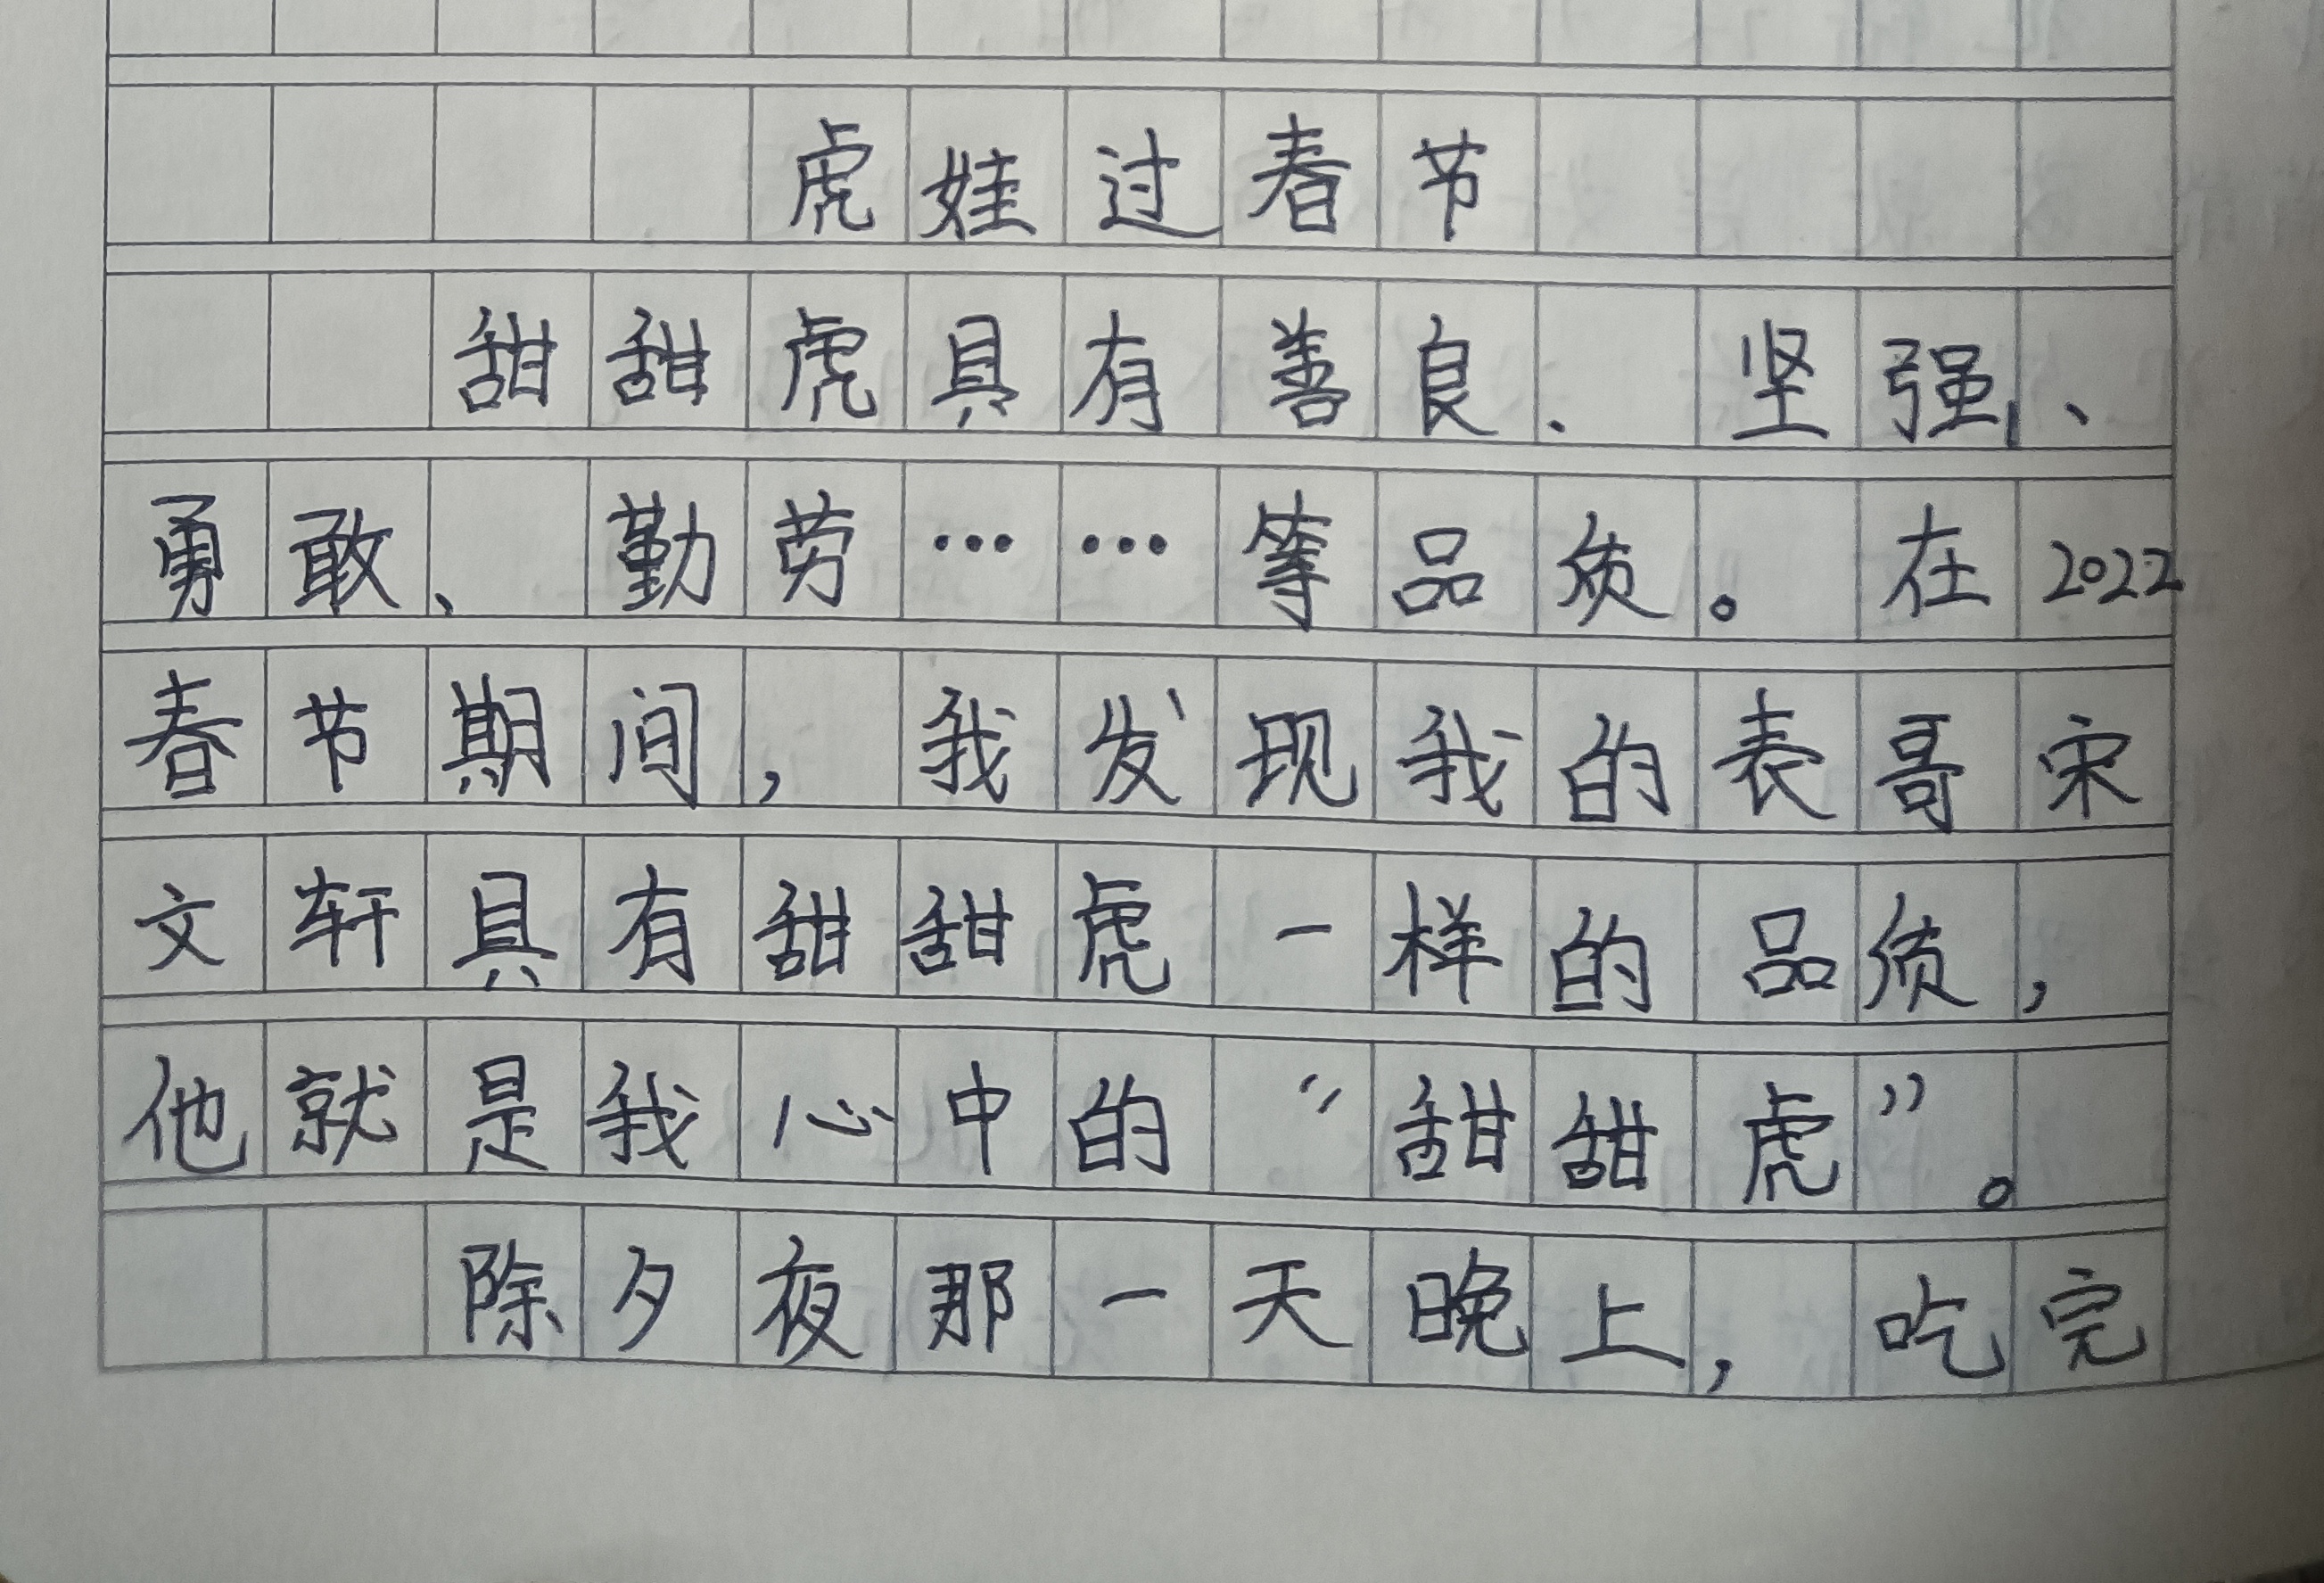 虎娃过春节
甜甜虎具有善良、坚强、
勇敢、勤劳……等品质。在2022
春节期间，我发现我的表哥宋
文轩具有甜甜虎一样的品质，
他就是我心中的“甜甜虎”。
除夕夜那一天晚上，吃完